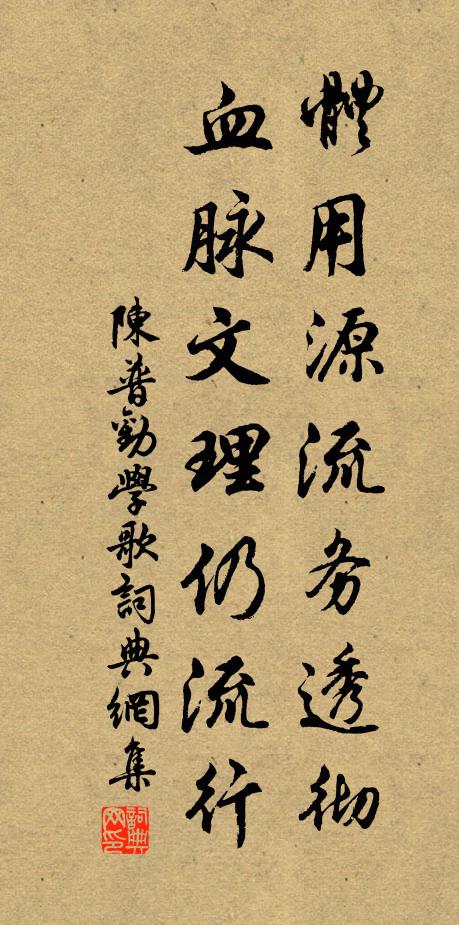 體用源流务透彻
血脉文理仍流行
陳普勸學歌詞典網集
詞典网印